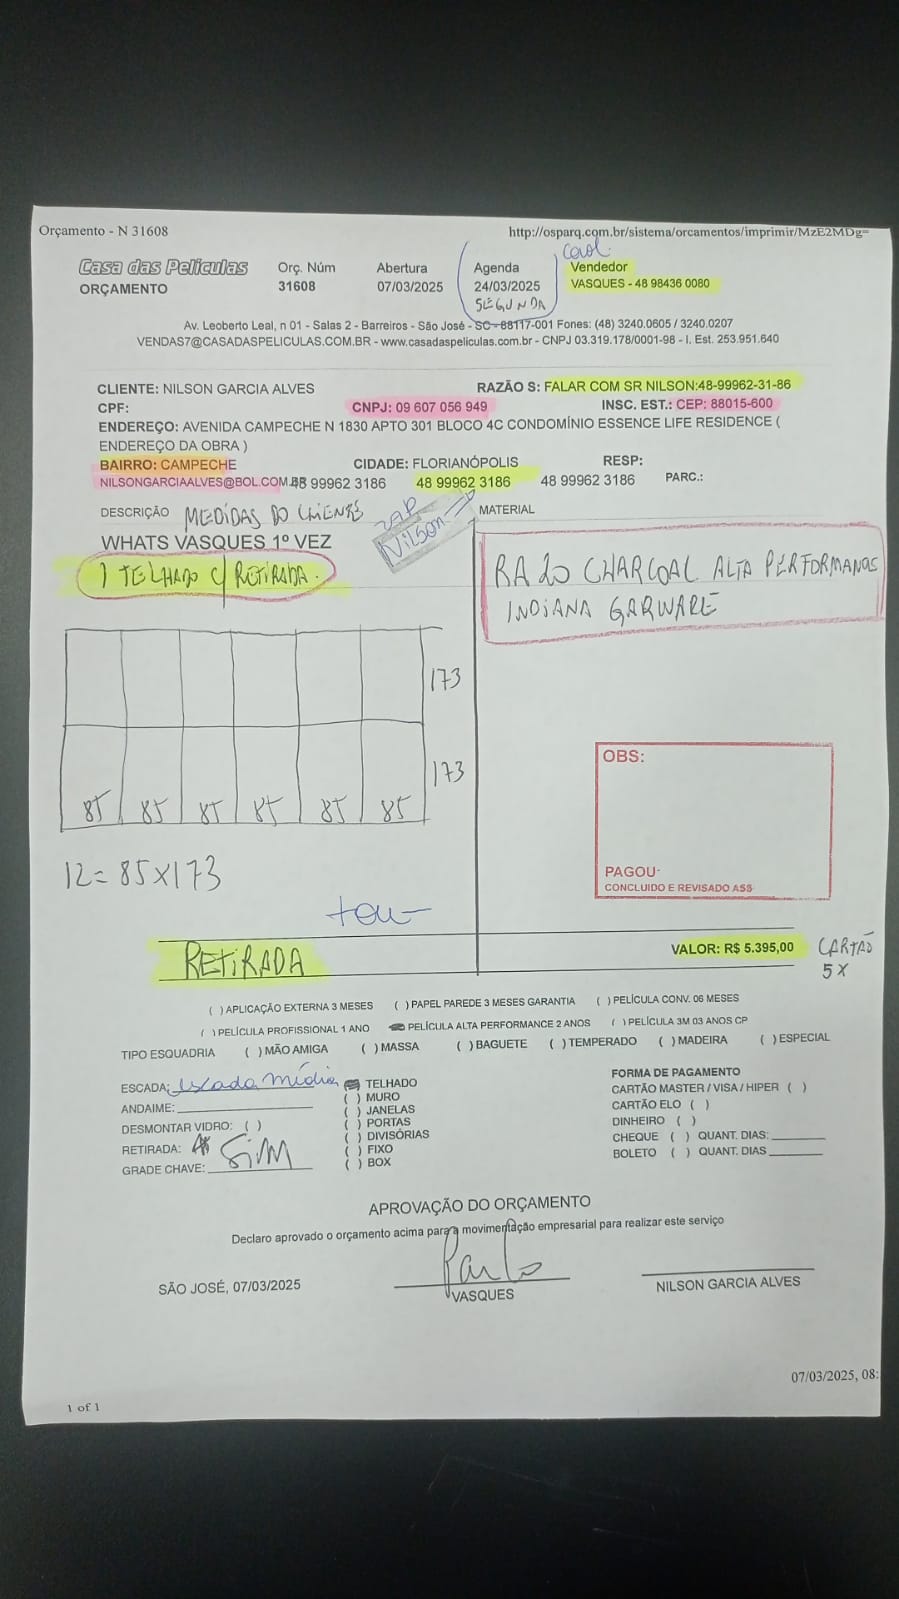 Orçamento - N 31608
http://osparq.com.br/sistema/orcamentos/imprimir/MzE2MDg=
Carol
Casa das Películas
Orç. Núm
Abertura
Agenda
Vendedor
ORÇAMENTO
31608
07/03/2025
24/03/2025
VASQUES - 48 98436 0080
SEGUNDA
Av. Leoberto Leal, n 01 - Salas 2 - Barreiros - São José - SC - 88117-001 Fones: (48) 3240.0605 / 3240.0207
VENDAS7@CASADASPELICULAS.COM.BR - www.casadaspeliculas.com.br - CNPJ 03.319.178/0001-98 - I. Est. 253.951.640
CLIENTE: NILSON GARCIA ALVES
RAZÃO S: FALAR COM SR NILSON:48-99962-31-86
CPF:
CNPJ: 09 607 056 949
INSC. EST.: CEP: 88015-600
ENDEREÇO: AVENIDA CAMPECHE N 1830 APTO 301 BLOCO 4C CONDOMÍNIO ESSENCE LIFE RESIDENCE (
ENDEREÇO DA OBRA )
BAIRRO: CAMPECHE
CIDADE: FLORIANÓPOLIS
RESP:
NILSONGARCIAALVES@BOL.COM.BR
48 99962 3186
48 99962 3186
48 99962 3186
PARC.:
DESCRIÇÃO MEDIDAS DO CLIENTE
ZAP
Nilson
MATERIAL
WHATS VASQUES 1º VEZ
1 TELHADO C/ RETIRADA.
RA 20 CHARCOAL ALTA PERFORMANCE
INDIANA GARWARE
173
173
85 85 85 85 85 85
OBS:
12= 85X173
PAGOU-
CONCLUIDO E REVISADO ASS
RETIRADA
VALOR: R$ 5.395,00
CARTÃO
5X
( ) APLICAÇÃO EXTERNA 3 MESES ( ) PAPEL PAREDE 3 MESES GARANTIA ( ) PELÍCULA CONV. 06 MESES
( ) PELÍCULA PROFISSIONAL 1 ANO PELÍCULA ALTA PERFORMANCE 2 ANOS ( ) PELÍCULA 3M 03 ANOS CP
TIPO ESQUADRIA ( ) MÃO AMIGA ( ) MASSA ( ) BAGUETE ( ) TEMPERADO ( ) MADEIRA ( ) ESPECIAL
ESCADA: Escada média
ANDAIME:
DESMONTAR VIDRO: ( )
RETIRADA: Sim
GRADE CHAVE:
TELHADO
( ) MURO
( ) JANELAS
( ) PORTAS
( ) DIVISÓRIAS
( ) FIXO
( ) BOX
FORMA DE PAGAMENTO
CARTÃO MASTER / VISA / HIPER ( )
CARTÃO ELO ( )
DINHEIRO ( )
CHEQUE ( ) QUANT. DIAS:
BOLETO ( ) QUANT. DIAS
APROVAÇÃO DO ORÇAMENTO
Declaro aprovado o orçamento acima para a movimentação empresarial para realizar este serviço
SÃO JOSÉ, 07/03/2025
VASQUES
NILSON GARCIA ALVES
07/03/2025, 08:
1 of 1